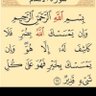 سورة الأنعام
بِسْمِ ٱللَّهِ ٱلرَّحْمَٰنِ ٱلرَّحِيمِ
وَإِن يَمْسَسْكَ ٱللَّهُ بِضُرٍّ فَلَا
كَاشِفَ لَهُۥٓ إِلَّا هُوَ ۖ وَإِن
يَمْسَسْكَ بِخَيْرٍ فَهُوَ عَلَىٰ كُلِّ
شَىْءٍ قَدِيرٌ